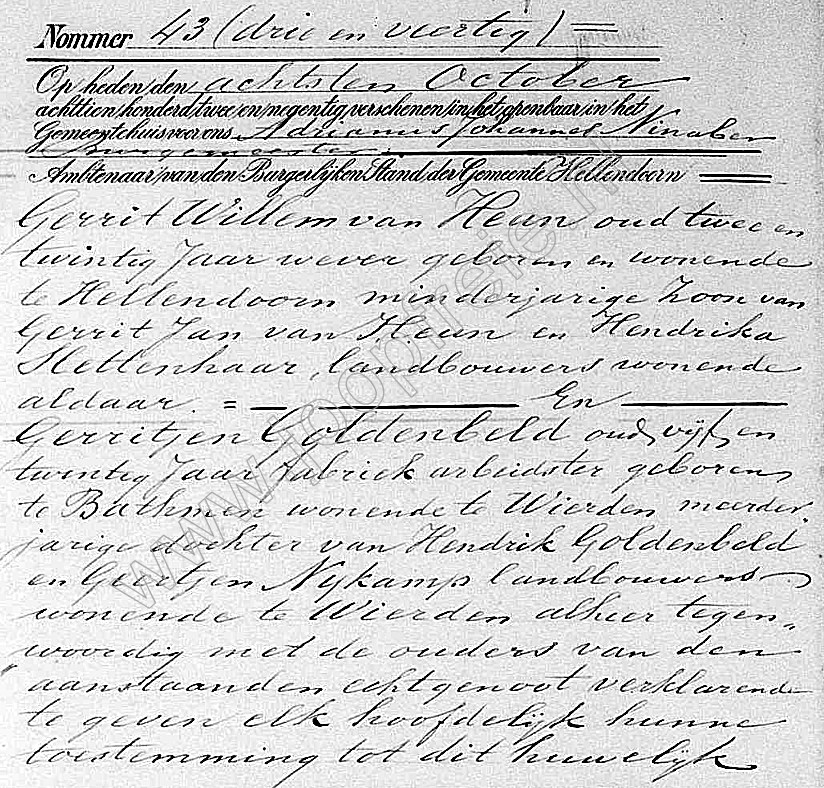 Nommer 43 (drie en veertig)
Op heden den achtsten October
achttien honderd twee en negentig verschenen in het openbaar in het
Gemeentehuis voor ons Adrianus Johannes Ninaber
Burgemeester
Ambtenaar van den Burgerlijken Stand der Gemeente Hellendoorn
Gerrit Willem van Heun oud twee en
twintig Jaar wever geboren en wonende
te Hellendoorn minderjarige zoon van
Gerrit Jan van Heun en Hendrika
Hettenhaar, landbouwers wonende
aldaar. = En
Gerritjen Goldenbeld oud vijf en
twintig Jaar fabriek arbeidster geboren
te Bathmen wonende te Wierden meerder
jarige dochter van Hendrik Goldenbeld
en Geertjen Nijkamp landbouwers
wonende te Wierden alhier tegen„
woordig met de ouders van den
aanstaanden echtgenoot verklarende
te geven elk hoofdelijk hunne
toestemming tot dit huwelijk